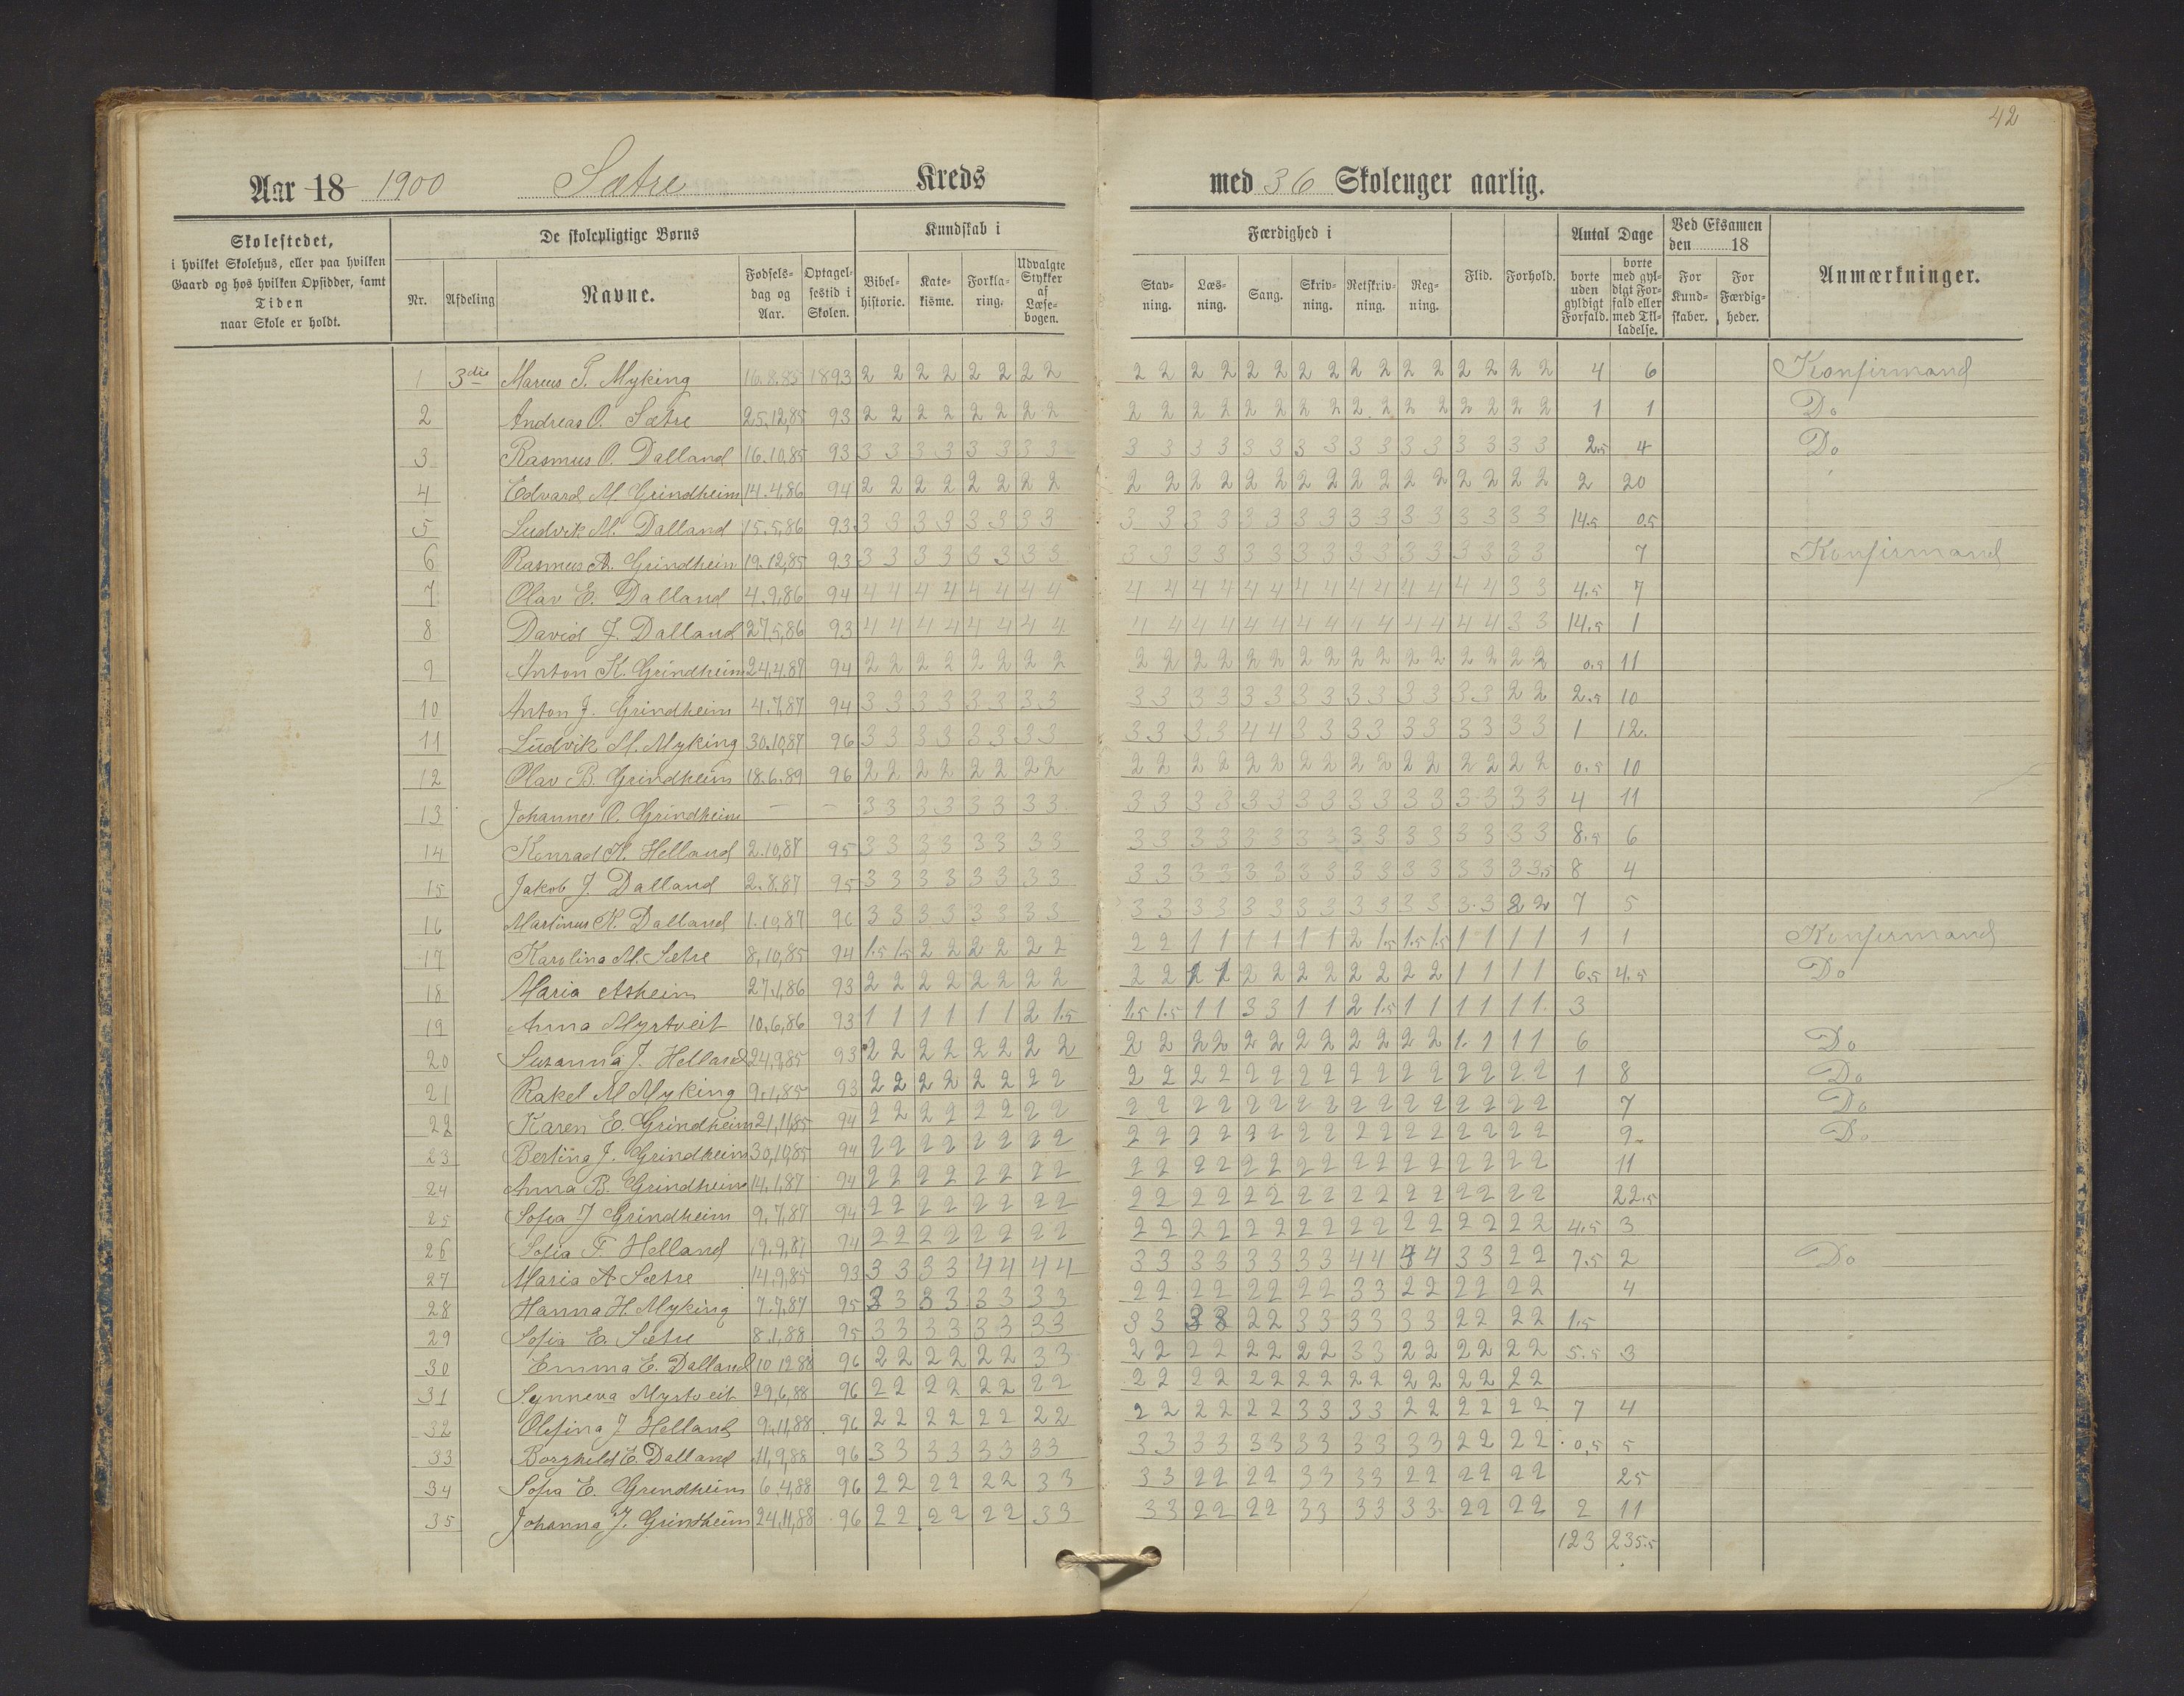 42
Aar 18 1900 Sætre Kreds med 36 Skoleuger aarlig.
Skolestedet, i hvilket Skolehus, eller paa hvilken Gaard og hos hvilken Opsidder, samt Tiden naar Skole er holdt.
De skolepligtige Børns
Nr. Afdeling Navne. Fødselsdag og Aar. Optagelsestid i Skolen.
Kundskab i
Bibelhistorie. Katekisme. Forklaring. Udvalgte Stykker af Læsebogen.
Færdighed i
Stavning. Læsning. Sang. Skrivning. Retskrivning. Regning. Flid. Forhold.
Antal Dage
borte uden gyldigt Forfald. borte med gyldigt Forfald eller med Tilladelse.
Ved Eksamen den 18
For Kundskaber. For Færdigheder.
Anmærkninger.
1 3die Marius T. Myking 16.8.85 1893 2 2 2 2 2 2 2 2 2 2 2 2 2 2 2 2 2 2 2 2 2 2 2 2 4 6 Konfirmand
2 Andreas O. Sætre 25,12,85 93 2 2 2 2 2 2 2 2 2 2 2 2 2 2 2 2 2 2 2 2 2 2 2 2 1 1 Do
3 Rasmus O. Dalland 16.10.85 93 3 3 3 3 3 3 3 3 3 3 3 3 3 3 3 3 3 3 3 3 3 3 3 3 2.5 4 Do
4 Edvard M. Grindheim 14.4.86 94 2 2 2 2 2 2 2 2 2 2 2 2 2 2 2 2 2 2 2 2 2 2 2 2 2 20
5 Ludvik M. Dalland 15.5,86 93 3 3 3 3 3 3 3 3 3 3 3 3 3 3 3 3 3 3 3 3 3 3 3 3 14.5 0.5
6 Rasmus A. Grindheim 19.12,85 93 3 3 3 3 3 3 3 3 3 3 3 3 3 3 3 3 3 3 3 3 3 3 3 3 7 Konfirmand
7 Olav E. Dalland 4.9.86 94 4 4 4 4 4 4 4 4 4 4 4 4 4 4 4 4 4 4 4 4 4 4 3 3 4.5 7
8 David J. Dalland 27.5,86 93 4 4 4 4 4 4 4 4 4 4 4 4 4 4 4 4 4 4 4 4 4 4 3 3 14.5 1
9 Anton K. Grindheim 24.4.87 94 2 2 2 2 2 2 2 2 2 2 2 2 2 2 2 2 2 2 2 2 2 2 2 2 0.5 11
10 Anton J. Grindheim 4.7.87 94 3 3 3 3 3 3 3 3 3 3 3 3 3 3 3 3 3 3 3 3 3 3 2 2 2.5 10
11 Ludvik M. Myking 30.10.87 96 3 3 3 3 3 3 3 3 3 3 3 3 4 4 3 3 3 3 3 3 3 3 3 3 1 12.
12 Olav B. Grindheim 18.6.89 96 2 2 2 2 2 2 2 2 2 2 2 2 2 2 2 2 2 2 2 2 2 2 2 2 0.5 10
13 Johannes O. Grindheim — — 3 3 3 3 3 3 3 3 3 3 3 3 3 3 3 3 3 3 3 3 3 3 3 3 4 11
14 Konrad K. Helland 2.10,87 95 3 3 3 3 3 3 3 3 3 3 3 3 3 3 3 3 3 3 3 3 3 3 3 3 8.5 6
15 Jakob J. Dalland 2.8.87 95 3 3 3 3 3 3 3 3 3 3 3 3 3 3 3 3 3 3 3 3 3 3 3 3,5 8 4
16 Martinus K. Dalland 1.10,87 96 3 3 3 3 3 3 3 3 3 3 3 3 3 3 3 3 3 3 3 3 3 3 2 2 7 5
17 Karolina M. Sætre 8,10,85 94 1.5 1.5 2 2 2 2 2 2 2 2 1 1 1 1 1 1 2 1.5 1.5 1.5 1 1 1 1 1 1 Konfirmand
18 Maria Asheim 27.1,86 93 2 2 2 2 2 2 2 2 2 2 1 1 2 2 2 2 2 2 2 2 1 1 1 1 6.5 4.5 Do
19 Anna Myrtveit 10,6,86 93 1 1 1 1 1 1 2 1.5 1.5 1.5 1 1 3 3 1 1 2 1.5 1 1 1 1 1 1. 3
20 Suzanna J. Helland 24,9,85 93 2 2 2 2 2 2 2 2 2 2 2 2 2 2 2 2 2 2 2 2 1. 1 1 1 6 Do
21 Rakel M Myking 9.1,85 93 2 2 2 2 2 2 2 2 2 2 2 2 2 2 2 2 2 2 2 2 2 2 2 2 1 8 Do
22 Karen E. Grindheim 21,11,85 94 2 2 2 2 2 2 2 2 2 2 2 2 2 2 2 2 2 2 2 2 2 2 2 2 7 Do
23 Bertina J. Grindheim 30,10,85 94 2 2 2 2 2 2 2 2 2 2 2 2 2 2 2 2 2 2 2 2 2 2 2 2 9. Do
24 Anna B. Grindheim 14.1.87 94 2 2 2 2 2 2 2 2 2 2 2 2 2 2 2 2 2 2 2 2 2 2 2 2 11
25 Sofia J Grindheim 9.7,87 94 2 2 2 2 2 2 2 2 2 2 2 2 2 2 2 2 2 2 2 2 2 2 2 2 22.5
26 Sofia F. Helland 19.9,87 94 2 2 2 2 2 2 2 2 2 2 2 2 2 2 2 2 2 2 2 2 2 2 2 2 4.5 3
27 Maria A Sætre 14,9,85 93 3 3 3 3 4 4 4 4 3 3 3 3 3 3 3 3 4 4 4 4 3 3 2 2 7.5 2 Do
28 Hanna H. Myking 7.7,87 95 3 3 3 3 3 3 3 3 2 2 2 2 2 2 2 2 3 3 2 2 2 2 2 2 4
29 Sofia E. Sætre 8.1,88 95 3 3 3 3 3 3 3 3 3 3 3 3 2 2 3 3 3 3 3 3 2 2 2 2 1.5
30 Emma E. Dalland 10 12 88 96 2 2 2 2 2 2 3 3 2 2 2 2 2 2 2 2 3 3 2 2 2 2 2 2 5.5 3
31 Synneva Myrtveit 29,6,88 96 2 2 2 2 2 2 2 2 2 2 2 2 2 2 2 2 2 2 2 2 2 2 2 2
32 Olefina J. Helland 9.11,88 96 2 2 2 2 2 2 2 2 2 2 2 2 2 2 3 3 3 3 2 2 2 2 2 2 7 4
33 Borghild E. Dalland 11,9,88 96 3 3 3 3 3 3 3 3 3 3 3 3 3 3 3 3 3 3 3 3 2 2 2 2 0,5 5
34 Sofia E. Grindheim 6.4,88 96 2 2 2 2 2 2 3 3 3 3 2 2 2 2 3 3 3 3 2 2 2 2 2 2 25
35 Johanna J. Grindheim 24,11,88 96 2 2 2 2 2 2 3 3 3 3 2 2 2 2 3 3 3 3 3 3 2 2 2 2 2 11
123 235.5